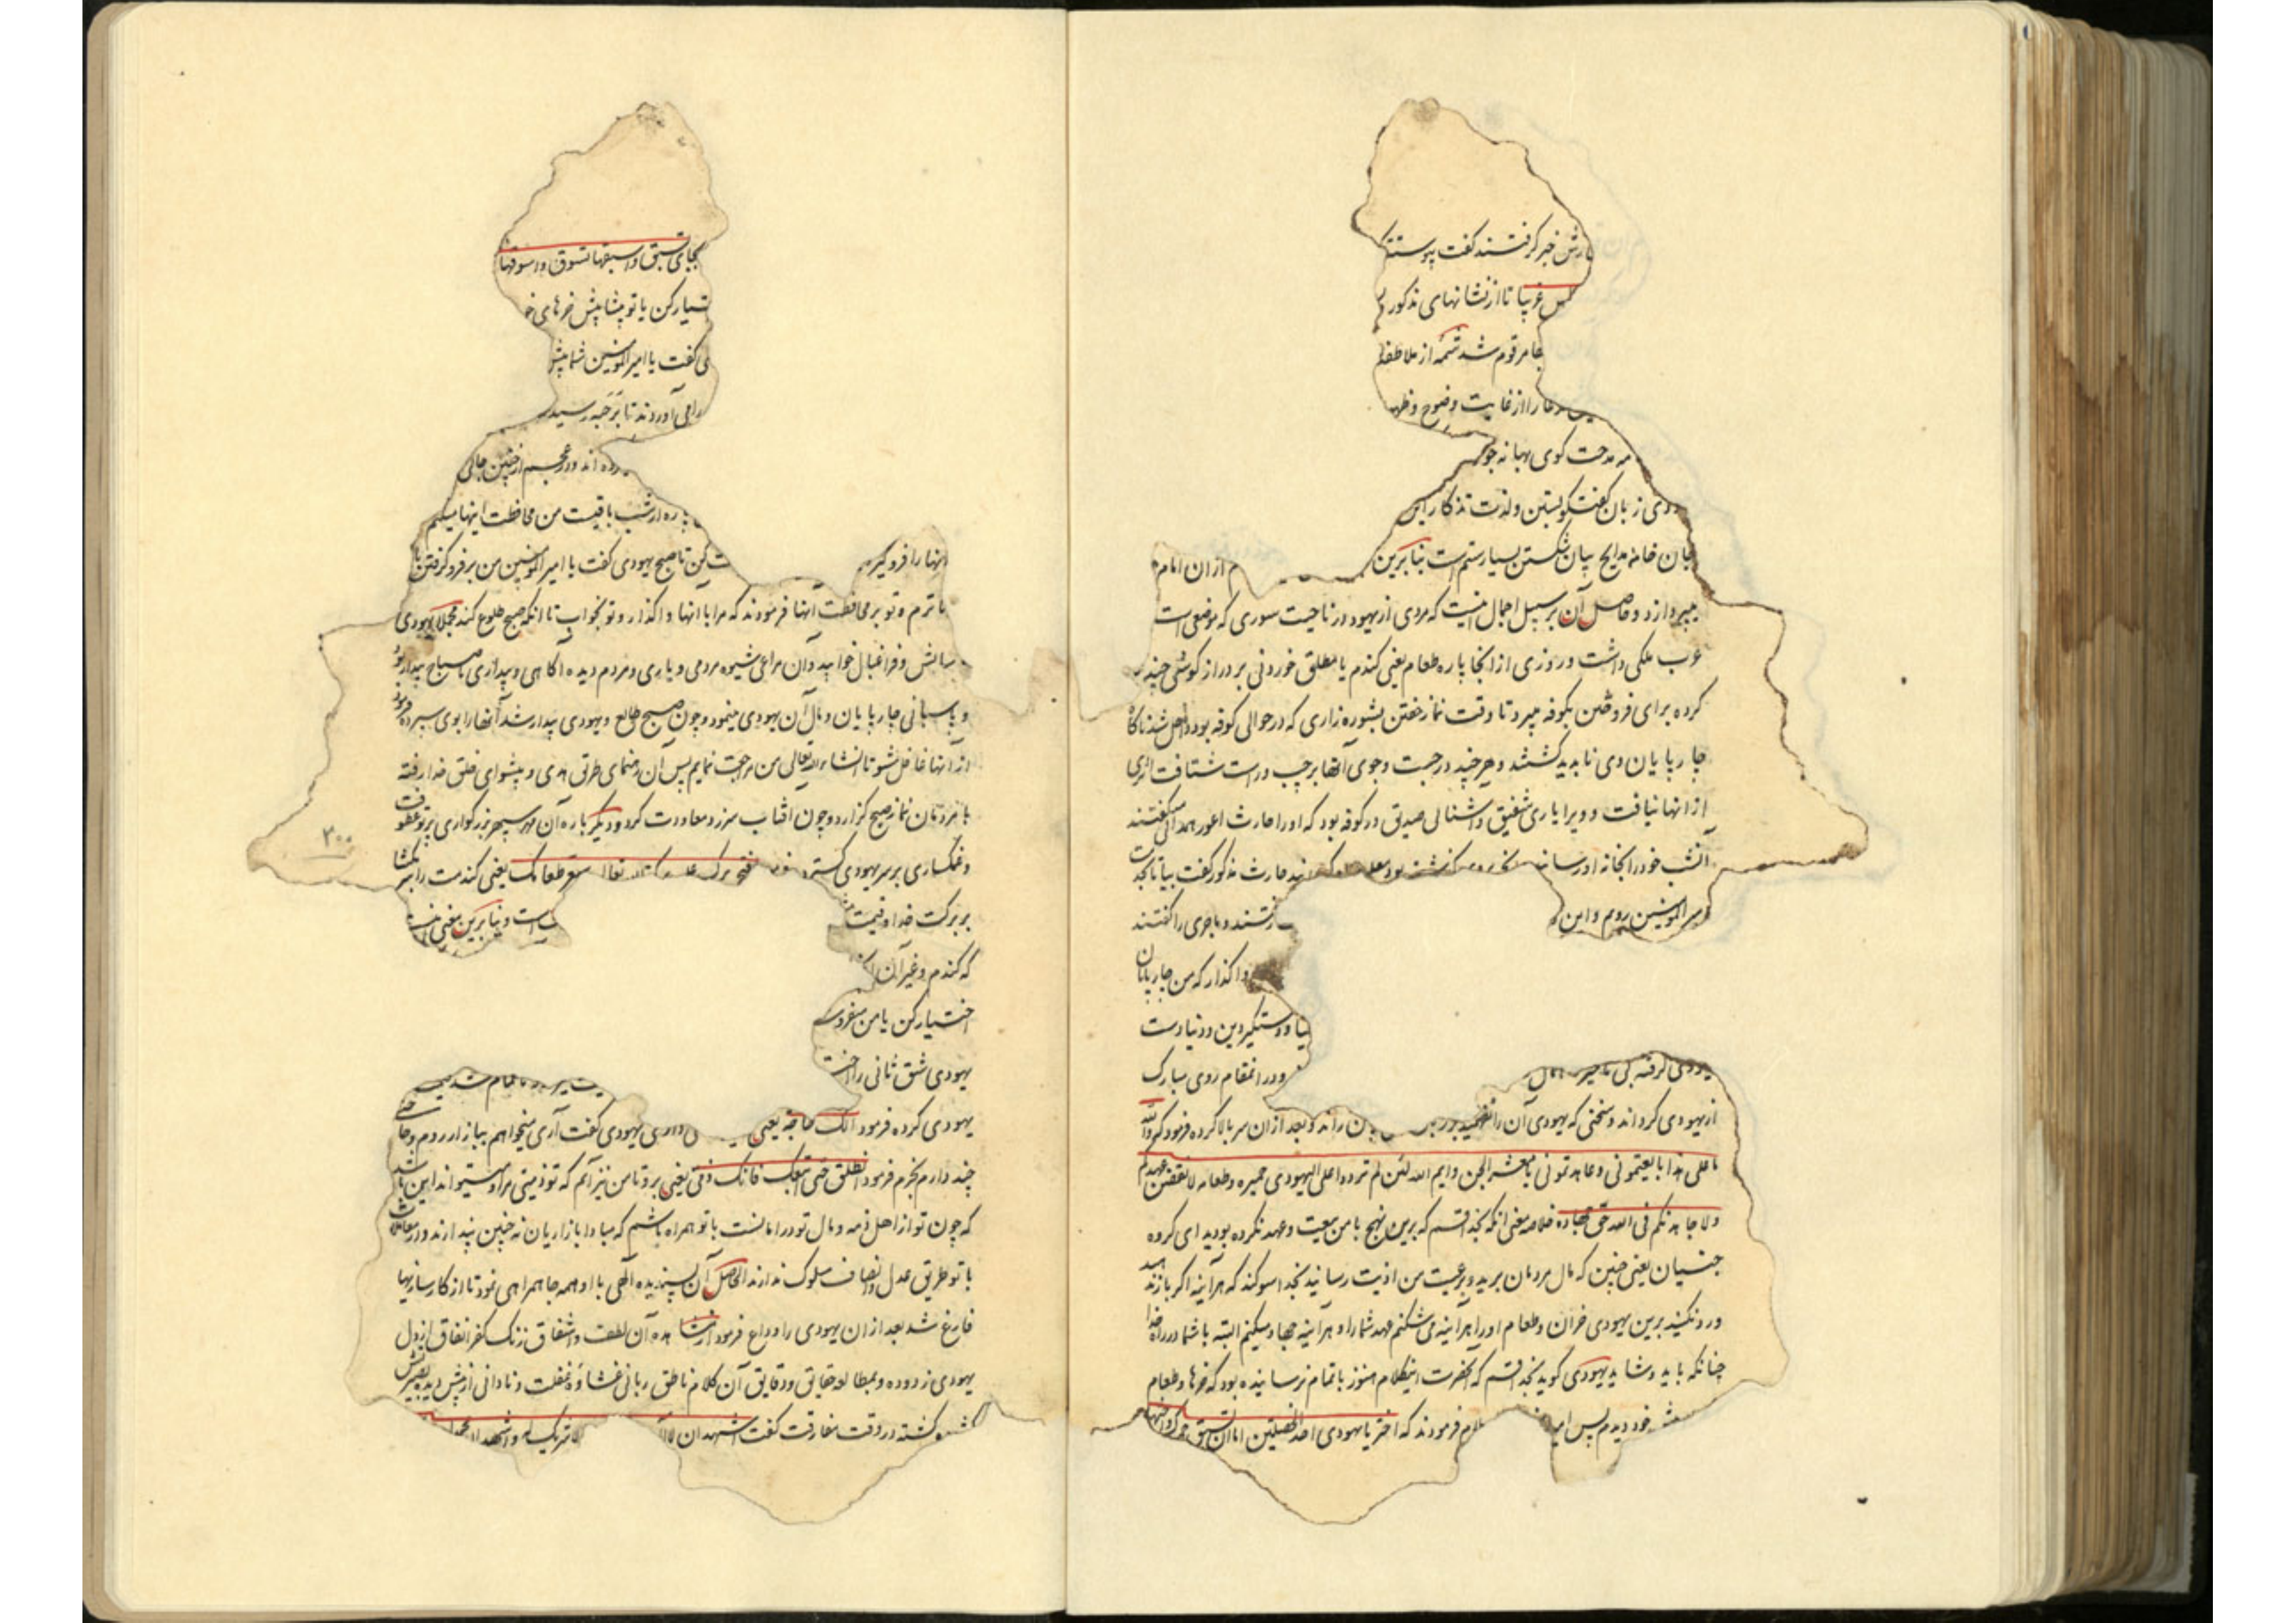 خبر گرفتند گفت پیوسته
غریبا تا از نشانهای مذکور
مرقوم شد شمه از ملاحظه
را از غایت وضوح و ظهو
مدحت گوی بهانه جو
زبان گفتگو بستن ولذت تذکار این
خامه مدایح بیان شکستن بسیار ستم است بنابرین از ان امام
میپردازد و حاصل آن بر سبیل اجمال اینست که مردی از یهود در ناحیت سوری که موضعی است
عرب ملکی داشت و روزی از انجا پاره طعام یعنی کندم یا مطلق خوردنی بر دراز گوشی چند
کرده برای فروختن بکوفه میبرد تا وقت نماز خفتن بشوره زاری که در حوالی کوفه بود داخل شد ناگاه
چار پایان وی ناپدید گشتند و هر چند در جست و جوی آنها بر چپ و راست شتافت اثری
از انها نیافت و ویرا یاری شفیق و آشنائی صدیق در کوفه بود که او را حارث اعور همدانی میگفتند
آنشب خود را بخانه او رساند گذشته بود حارث مذکور گفت بیا تا بخدمت
امیر المومنین رویم و این رفتند و ماجری را گفتند
واگذار که من چارپایان
و دستگیر دین و دنیا دست
و در انمقام روی مبارک
یهودی گرفته
از یهودی گرداند و سخنی که یهودی آن را نفهمید بر زبان راند و بعد از ان سر بالا کرده فرمود که والله
ما علی هذا بایعتمونی و عاهدتمونی یا معشر الجن وایم الله لئن لم تردوا علی الیهودی حمیره و طعامه لانقضن عهدکم
ولاجاهدنکم فی الله حق جهاده خلاصه معنی انکه بخدا قسم که برین نهج با من بیعت و عهد نکرده بودید ای گروه
جنیان یعنی چنین که مال مردمان برید و برعیت من اذیت رسانید بخدا سوگند که هر آینه اگر باز ندهید
ورد نکنید برین یهودی خران و طعام او را هر آینه می شکنم عهد شما را و هر آینه جهاد میکنم البته با شما در راه خدا
چنانکه باید و شاید یهودی گوید بخدا قسم که انحضرت اینکلام هنوز باتمام نرسانیده بود که خرها و طعام
خود دیدم پس فرمودند که اختر یا یهودی احد الخصلتین اما ان تسبق
تسبق واسبقها تسوق واسوقها
اختیار کن یا تو پیشاپیش خرها می
گفت یا امیر المومنین شما پیش
می آوردند تا برحبه رسید
از چنین جائی
پاره از شب باقیست من محافظت اینها میکنم
کن تا صبح یهودی گفت یا امیر المومنین من بر فرو گرفتن اینها را فرو گیر
و تو بر محافظت آنها فرمودند که مرا با انها واگذار و تو بخواب تا انکه صبح طلوع کند مجملا یهودی
و فراغبال خوابید و آن مراعی شیوه مردمی و یاری و مردم دیده آگاهی و بیداری تا صباح بیدار بود
و پاسبانی چارپایان و مال آن یهودی مینمود و چون صبح طالع و یهودی بیدار شد آنها را بوی سپرده فرمود
از آنها غافل مشو تا انشاء الله تعالی من مراجعت نمایم پس آن رهنمای طرق هدی و پیشوای خلق خدا رفته
با مردمان نماز صبح گزارد و چون افتاب سر زد معاودت کرد و دیگر باره آن مهر سپهر بزرگواری پرتو عطوفت
و غمگساری بر سر یهودی گسترد تعالی طعامک یعنی کندمت را بکشا
بر برکت خدا و قیمت است و بنابرین معنی
که کندم و غیر آن
اختیار کن یا من میفروشم
یهودی شق ثانی را اخت
تمام شد
یهودی کرده فرمود الک حاجة یعنی یهودی گفت آری میخواهم ببازار روم و حا
چند دارم بخرم فرمود انطلق حتی اتبعک فانک ذمی یعنی برو تا من نیز آیم که تو ذمیتی مراد میتواند این باشد
که چون تو از اهل ذمه و مال تو در امانست با تو همراه باشم که مبادا بازاریان نه چنین پندارند و در معاملات
با تو طریق عدل و انصاف مسلوک ندارند الحاصل آن پسندیده الهی با او همه جا همراهی نمود تا از کارسازیها
فارغ شد بعد از ان یهودی را وداع فرمود از مشاهده آن لطف و اشفاق زنگ کفر و نفاق از دل
یهودی زدوده و بمطالعه حقایق و دقایق آن کلام ناطق ربانی غشاوه غفلت و نادانی از پیش دیده بصیرتش
گشته در وقت مفارقت گفت اشهد ان لا شریک له و اشهد ان محمدا
۳۰۰